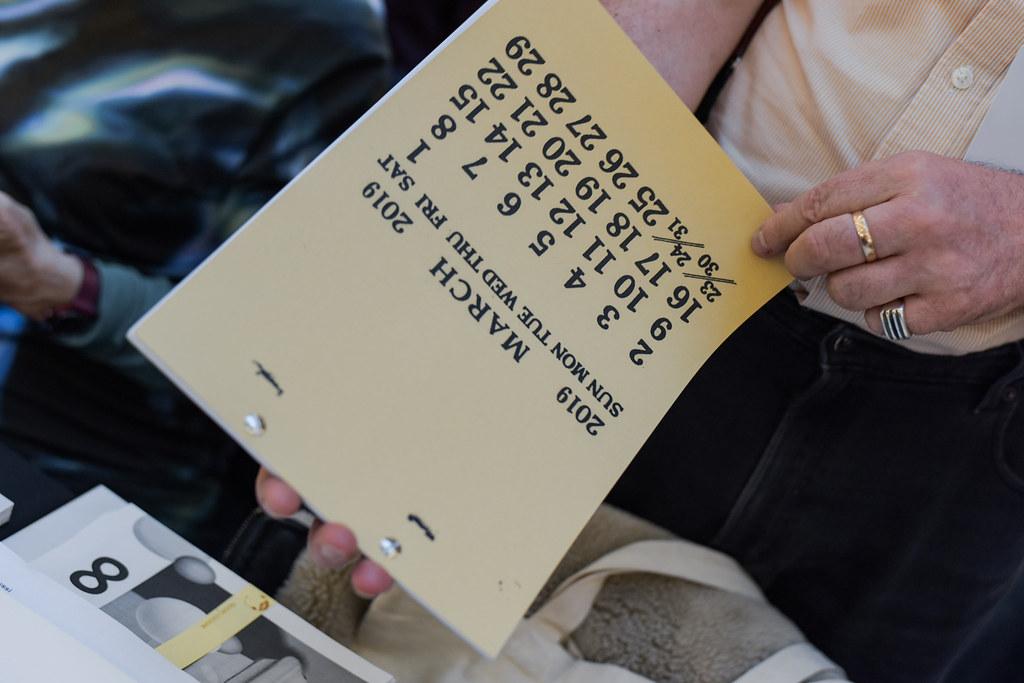 2019 MARCH 2019
SUN MON TUE WED THU FRI SAT
1
2 3 4 5 6 7 8
9 10 11 12 13 14 15
16 17 18 19 20 21 22
23/30 24/31 25 26 27 28 29
8